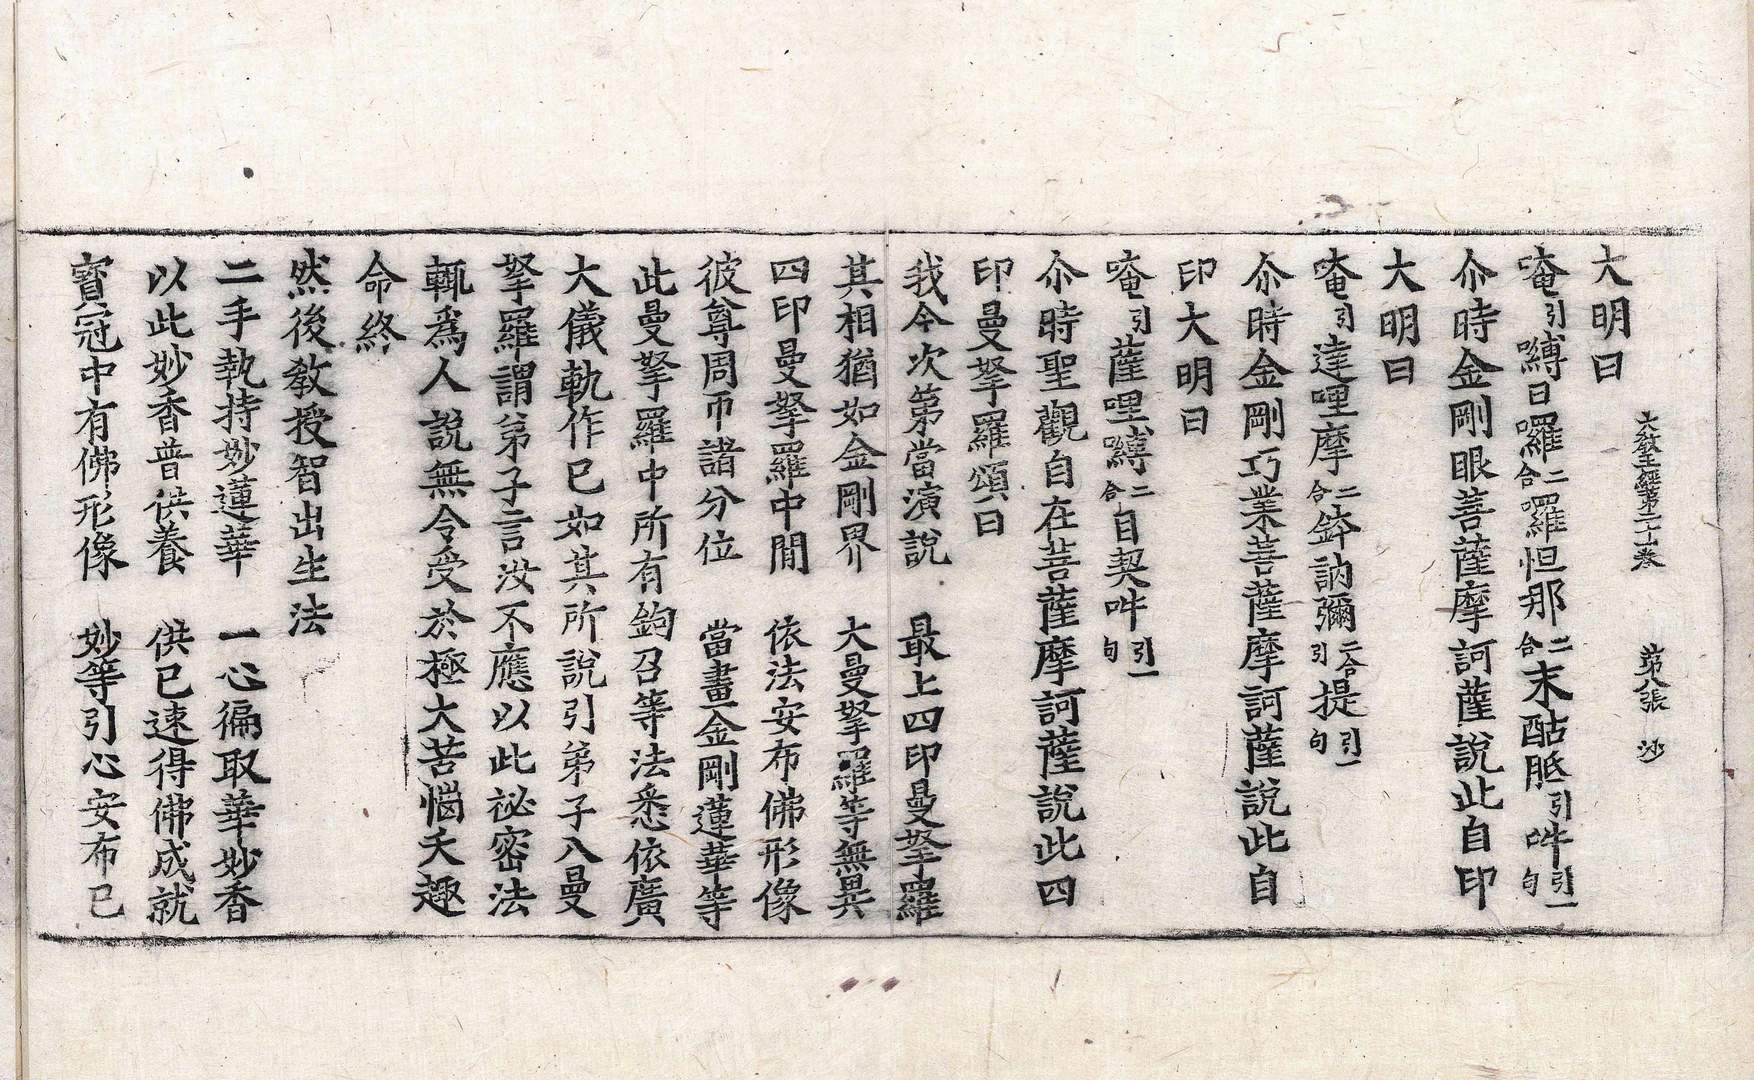 大明曰
大敎王經第二十卷 第八張 沙
唵引嚩日囉二合囉怛那二合末酤胝引吽引一句
尒時金剛眼菩薩摩訶薩說此自印
大明曰
唵引達哩摩二合鉢訥彌二合引提引一句
尒時金剛巧業菩薩摩訶薩說此自
印大明曰
唵引薩哩嚩二合目契吽引一句
尒時聖觀自在菩薩摩訶薩說此四
印曼拏羅頌曰
我今次第當演說 最上四印曼拏羅
其相猶如金剛界 大曼拏羅等無異
四印曼拏羅中間 依法安布佛形像
彼尊周帀諸分位 當畫金剛蓮華等
此曼拏羅中所有鉤召等法悉依廣
大儀軌作已如其所說引弟子入曼
拏羅謂弟子言汝不應以此祕密法
輒爲人說無令受於極大苦惱夭趣
命終
然後敎授智出生法
二手執持妙蓮華 一心徧取華妙香
以此妙香普供養 供已速得佛成就
寶冠中有佛形像 妙等引心安布已